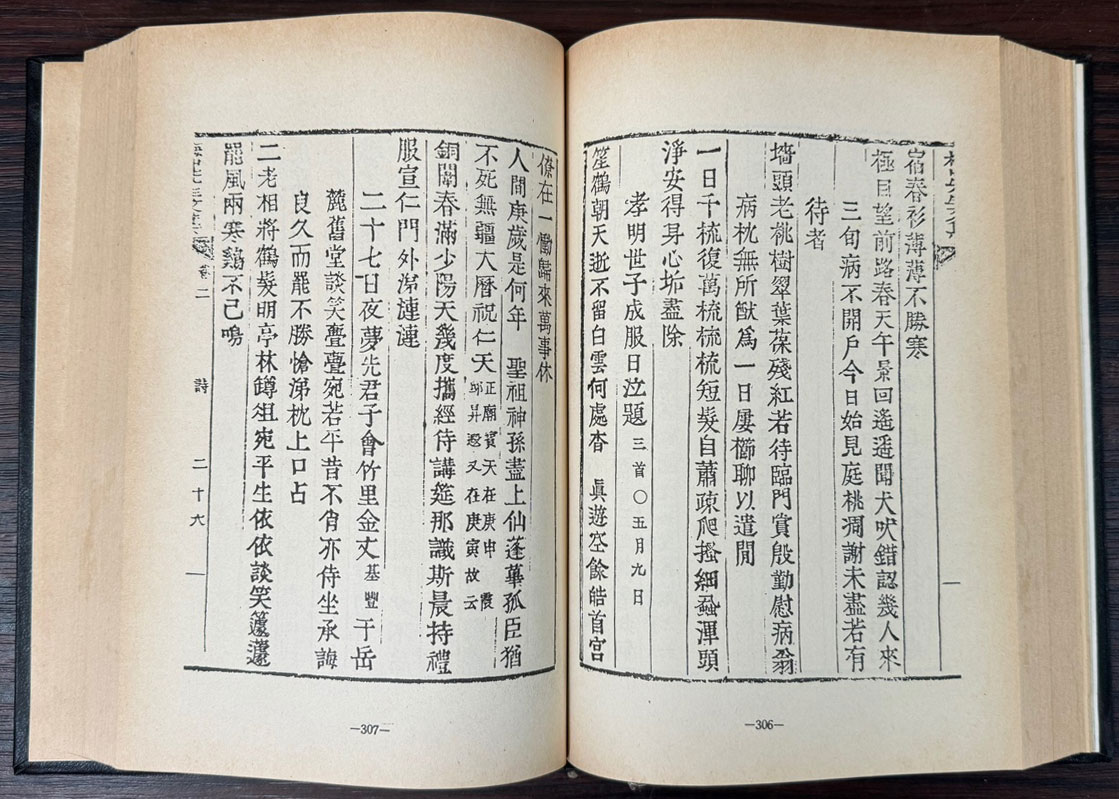 宿春衫薄薄不勝寒
極目望前路春天午景回遙遙聞犬吠錯認幾人來
三旬病不開戶今日始見庭桃凋謝未盡若有
待者
墻頭老桃樹翠葉葆殘紅若待臨門賞殷勤慰病翁
病枕無所猷爲一日屢櫛聊以遣閒
一日千梳復萬梳梳梳短髮自蕭疎爬搔細蝨渾頭
淨安得身心垢盡除
孝明世子成服日泣題三首○五月九日
笙鶴朝天逝不留白雲何處杳 眞遊空餘皓首宮
—306—
僚在一慟歸來萬事休
人間庚歲是何年 聖祖神孫盡上仙蓬蓽孤臣猶
不死無疆大曆祝仁天正廟賓天在庚申霞邱昇遐又在庚寅故云
銅闈春滿少陽天幾度攜經侍講筵那識斯晨持禮
服宣仁門外淚漣漣
二十七日夜夢先君子會竹里金丈基豐于岳
麓舊堂談笑亹亹宛若平昔不肖亦侍坐承誨
良久而罷不勝愴涕枕上口占
二老相將鶴髮明亭林罇俎宛平生依依談笑蘧蘧
罷風雨寒鷄不已鳴
卷二 詩 二十六
—307—